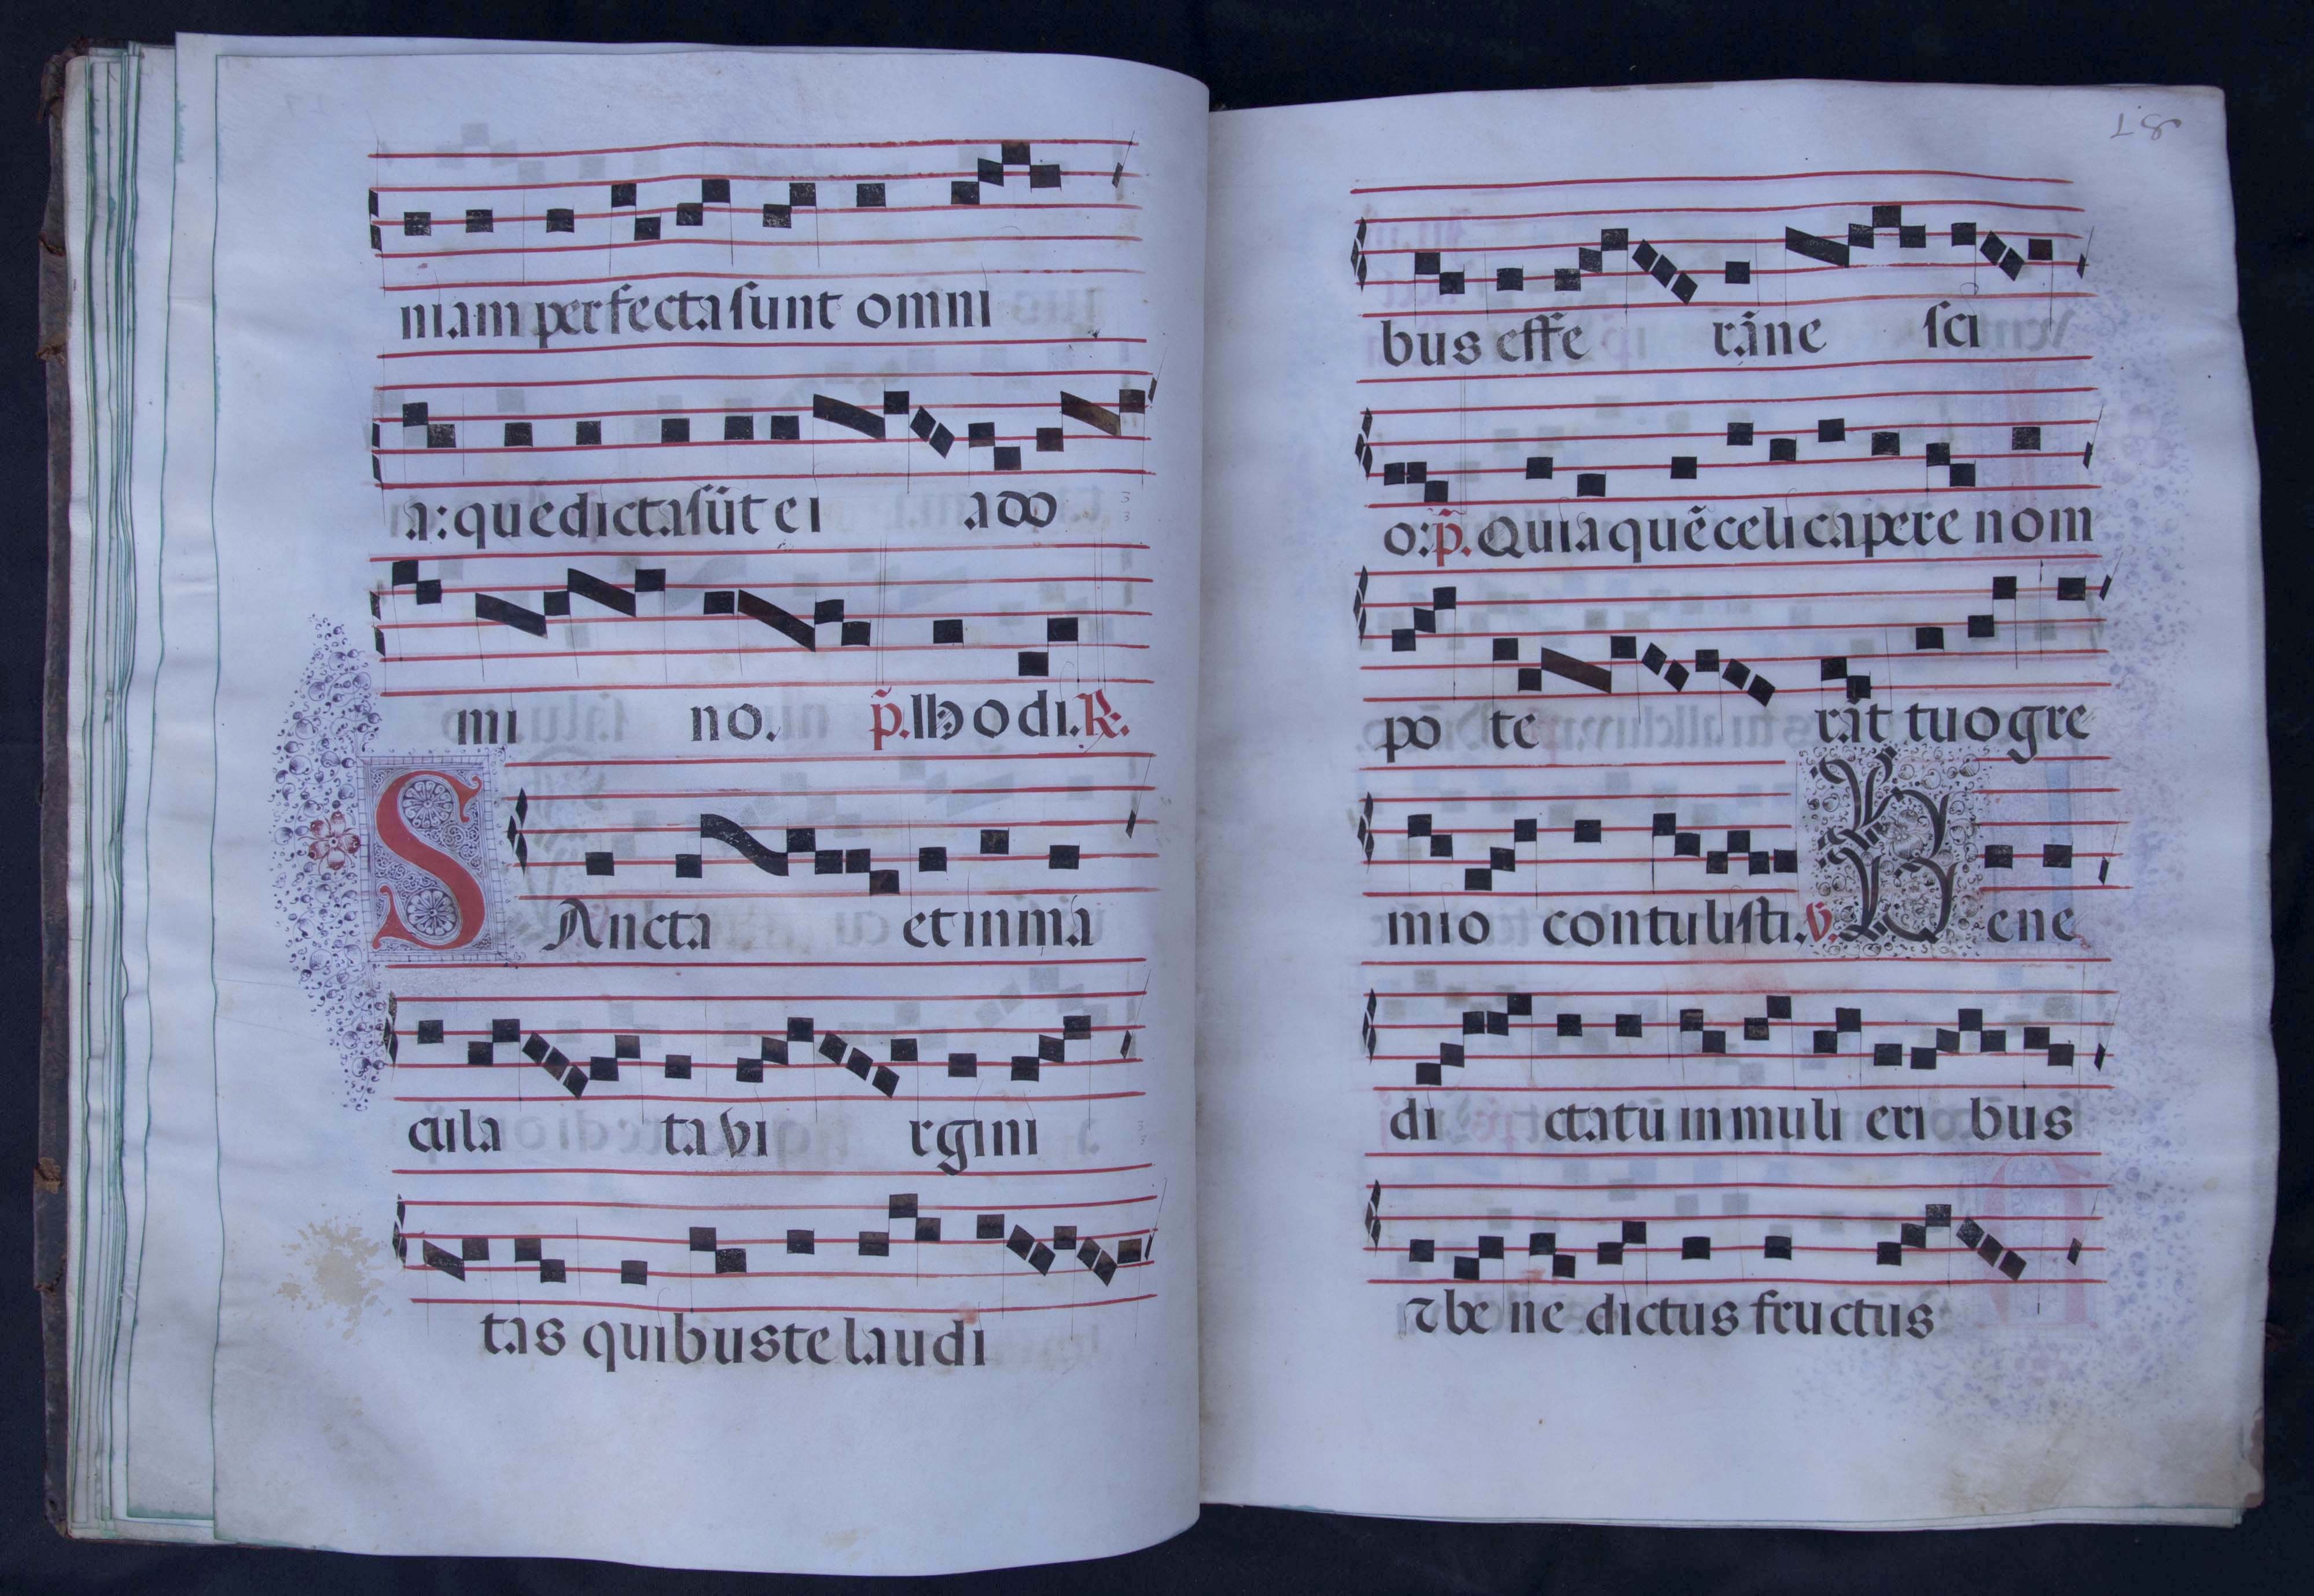 niam perfecta sunt omni
a: que dicta sūt ei ado
mi no. p̃. lhodi. R.
SAncta et inma
cula ta vi rgini
tas quibus te laudi
18
bus effe rāne sci
o: p̃. Quia quē celi capere nom
po te rāt tuo gre
mio contulisti. V. Bene
di cta tu in muli eri bus
⁊ be ne dictus fructus